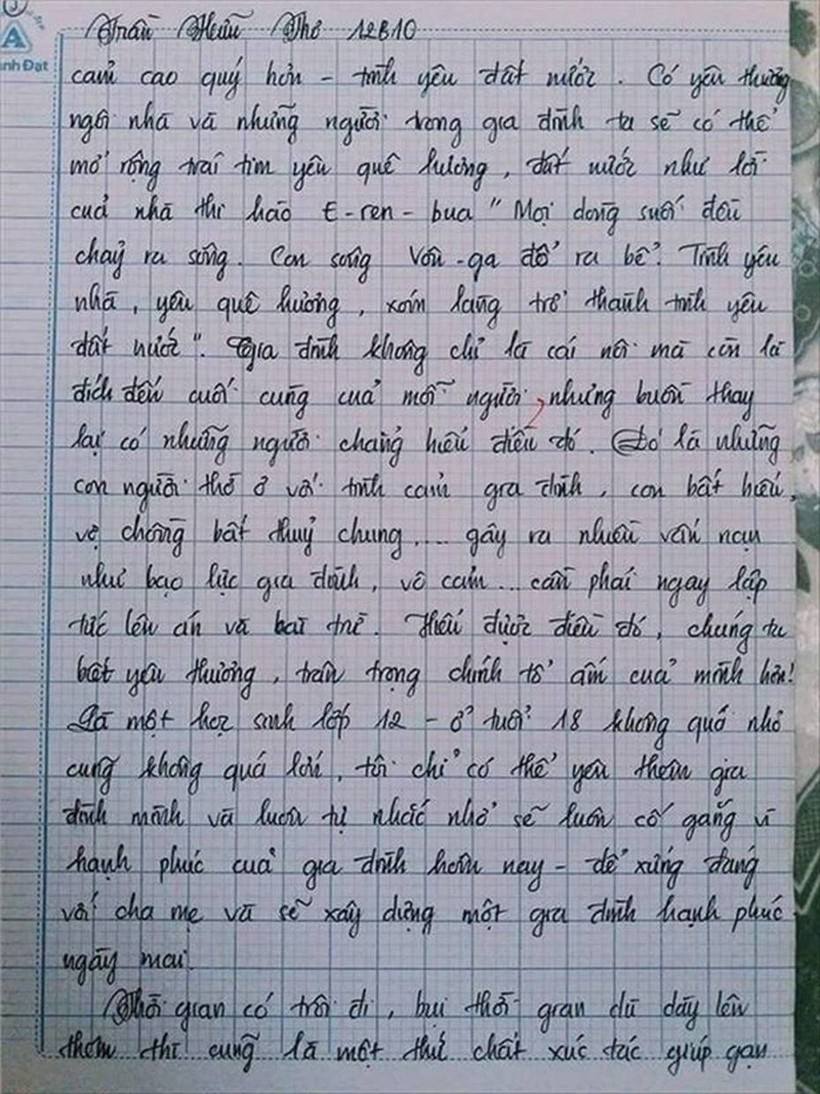 3
A
nh Đạt
Trần Hữu Thơ 12B10
cảm cao quý hơn - tình yêu đất nước. Có yêu thương
ngôi nhà và những người trong gia đình ta sẽ có thể
mở rộng trái tim yêu quê hương, đất nước như lời
của nhà thi hào E-ren-bua "Mọi dòng suối đều
chảy ra sông. Con sông Vôn-ga đổ ra bể. Tình yêu
nhà, yêu quê hương, xóm làng trở thành tình yêu
đất nước". Gia đình không chỉ là cái nôi mà còn là
đích đến cuối cùng của mỗi người nhưng buồn thay
lại có những người chẳng hiểu điều đó. Đó là những
con người thờ ơ với tình cảm gia đình, con bất hiếu,
vợ chồng bất thuỷ chung.... gây ra nhiều vấn nạn
như bạo lực gia đình, vô cảm... cần phải ngay lập
tức lên án và bài trừ. Hiểu được điều đó, chúng ta
biết yêu thương, trân trọng chính tổ ấm của mình hơn!
Là một học sinh lớp 12 - ở tuổi 18 không quá nhỏ
cũng không quá lớn, tôi chỉ có thể yêu thêm gia
đình mình và luôn tự nhắc nhở sẽ luôn cố gắng vì
hạnh phúc của gia đình hôm nay - để xứng đáng
với cha mẹ và sẽ xây dựng một gia đình hạnh phúc
ngày mai.
Thời gian có trôi đi, bụi thời gian dù dày lên
thêm thì cũng là một thứ chất xúc tác giúp gạn